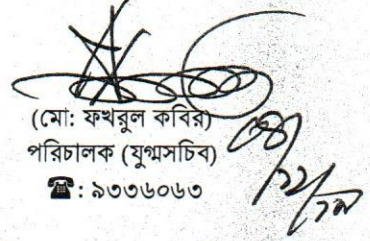 (মো: ফখরুল কবির)
পরিচালক (যুগ্মসচিব)
☎: ৯৩৩৬০৬৩